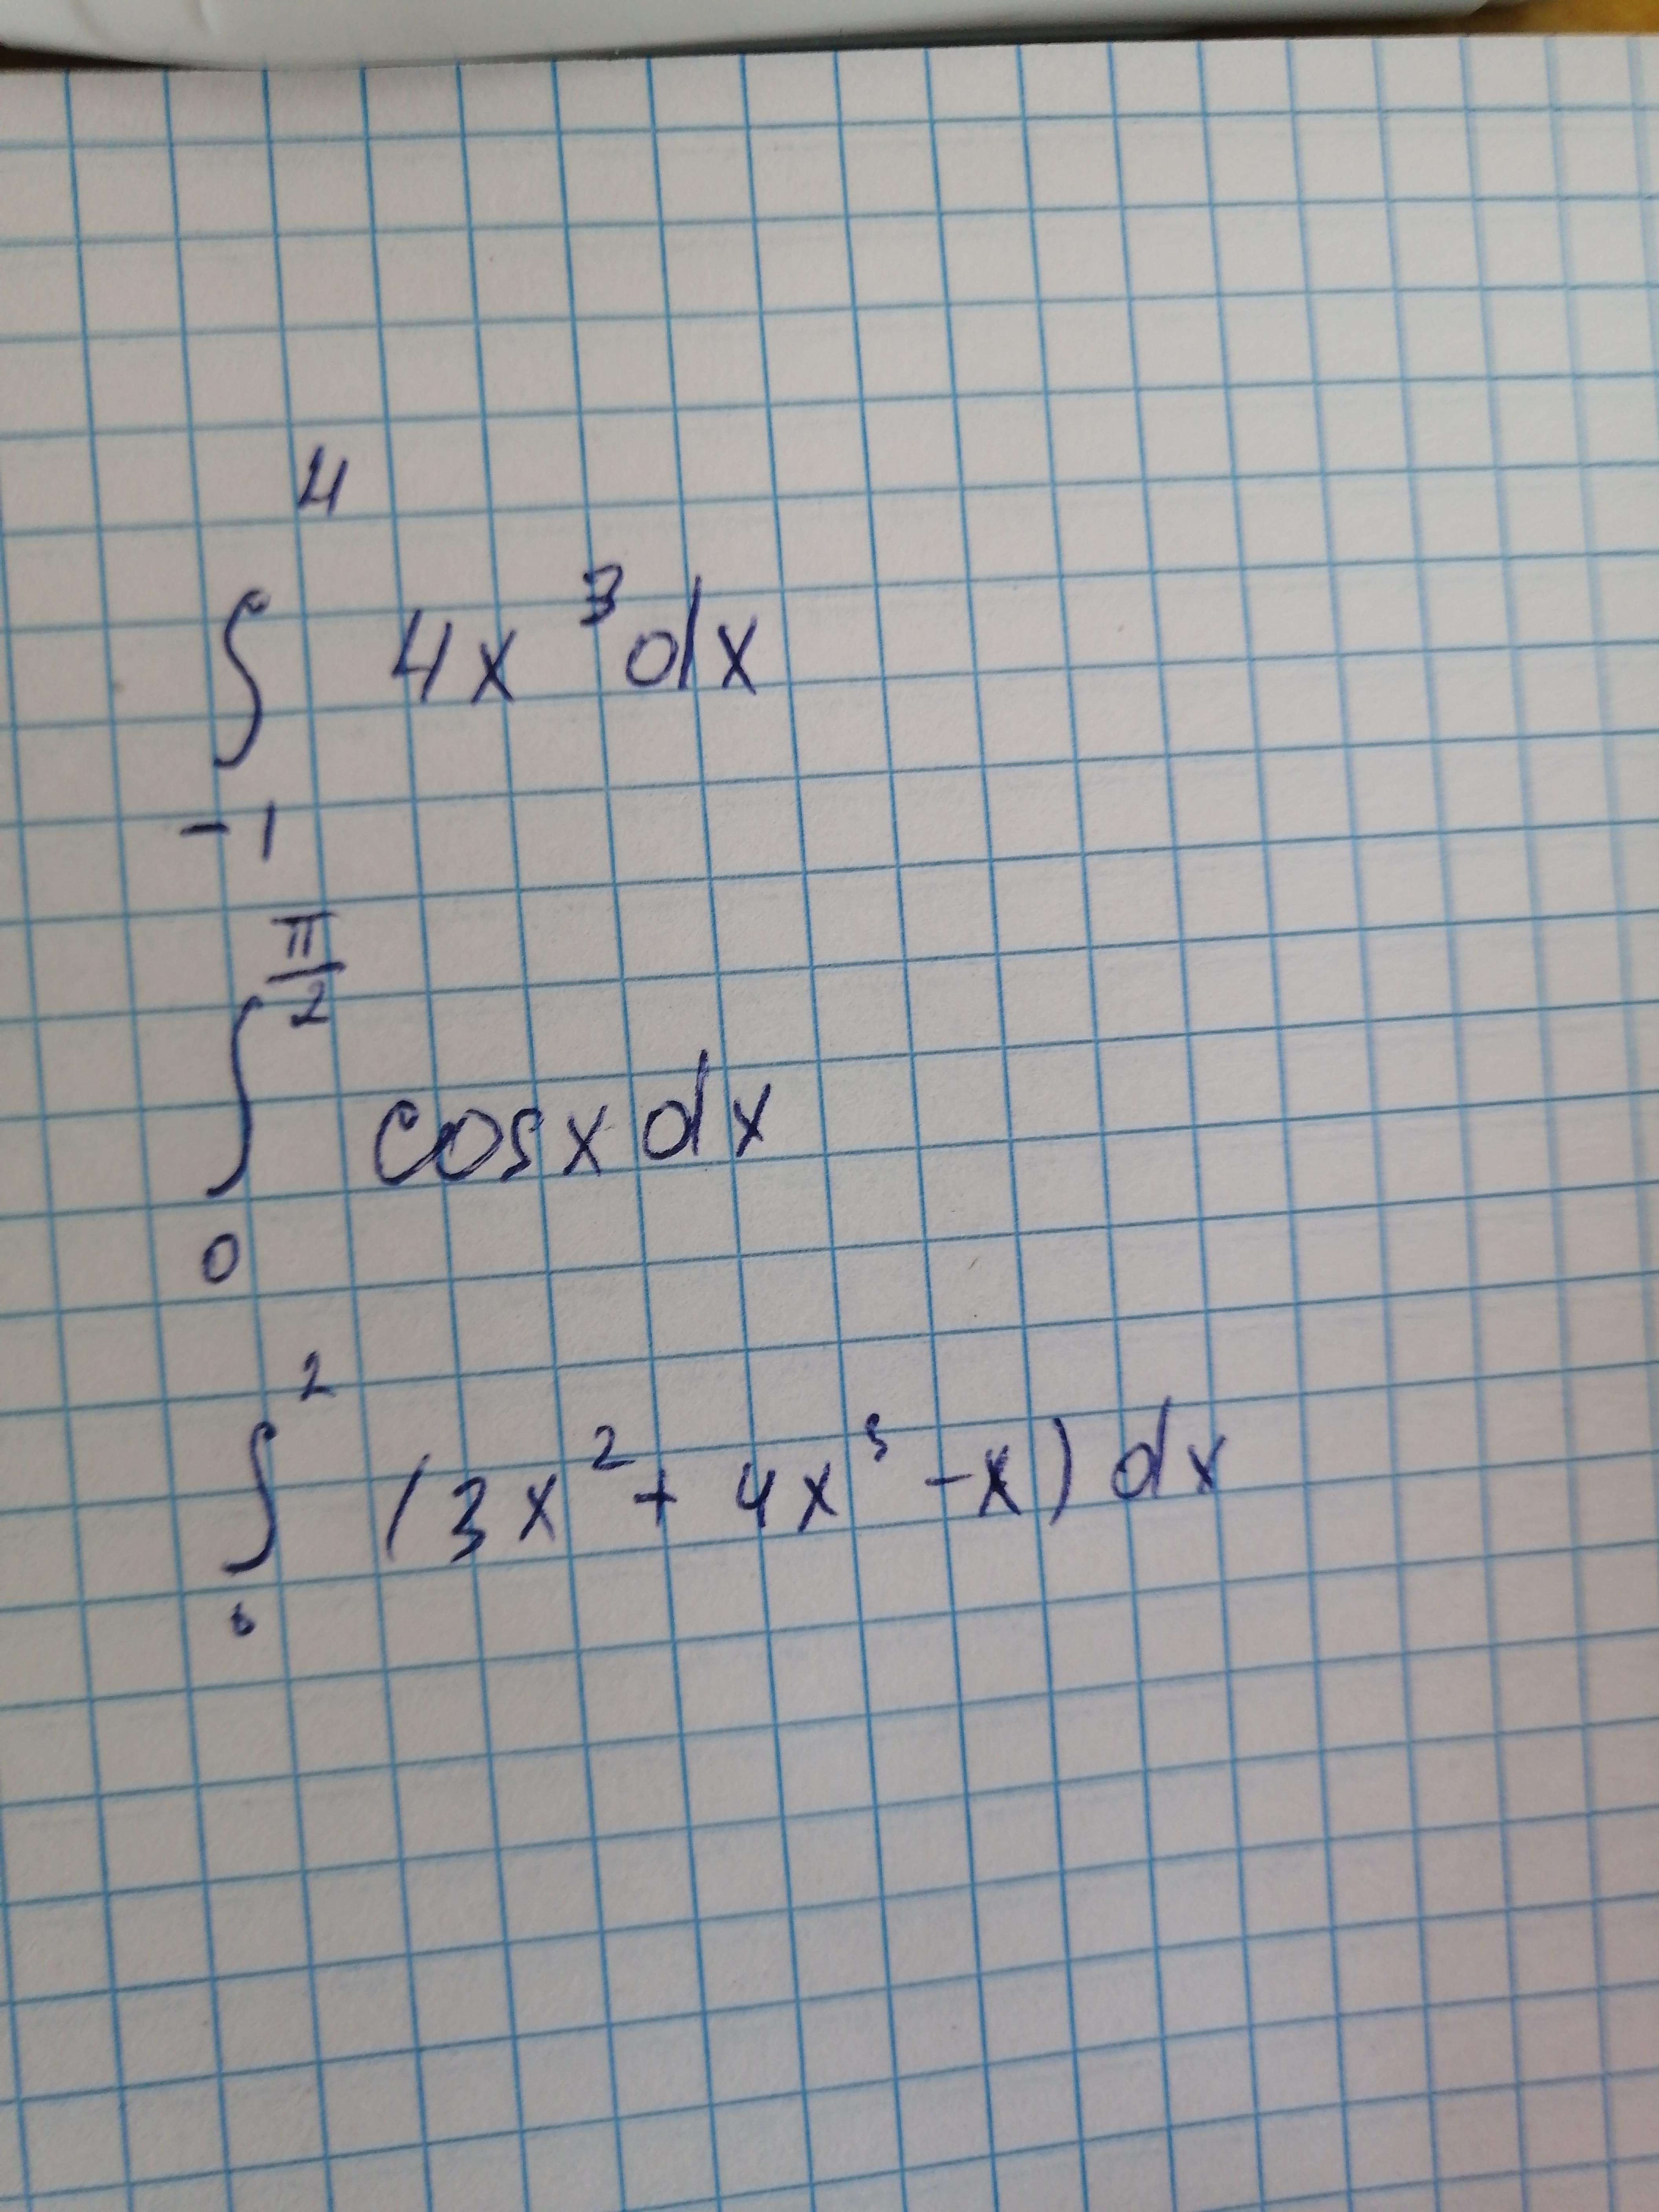 ∫₋₁⁴ 4x³dx
∫₀^(π/2) cosxdx
∫₀² (3x²+4x³-x)dx